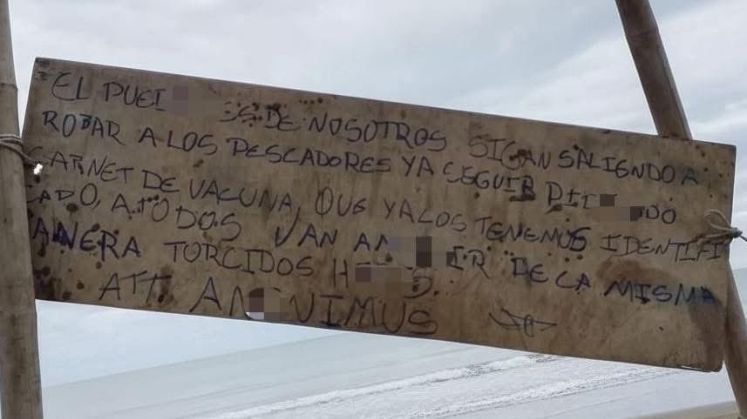 EL DE NOSOTROS SIGAN SALIENDO A
ROBAR A LOS PESCADORES YA SEGUIR
CARNET DE VACUNA, QUE YA LOS TENEMOS IDENTIFI
CADO, A TODOS VAN A DE LA MISMA
MANERA TORCIDOS
ATT